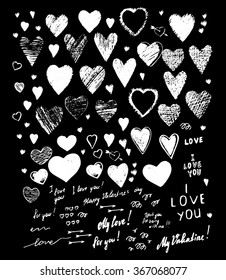 LOVE
I LOVE YOU
I
LOVE
YOU
I love you
I love you!
Happy Valentine's day
for you!
My love!
for you!
love
for you!
My Valentine!
www.shutterstock.com · 367068077